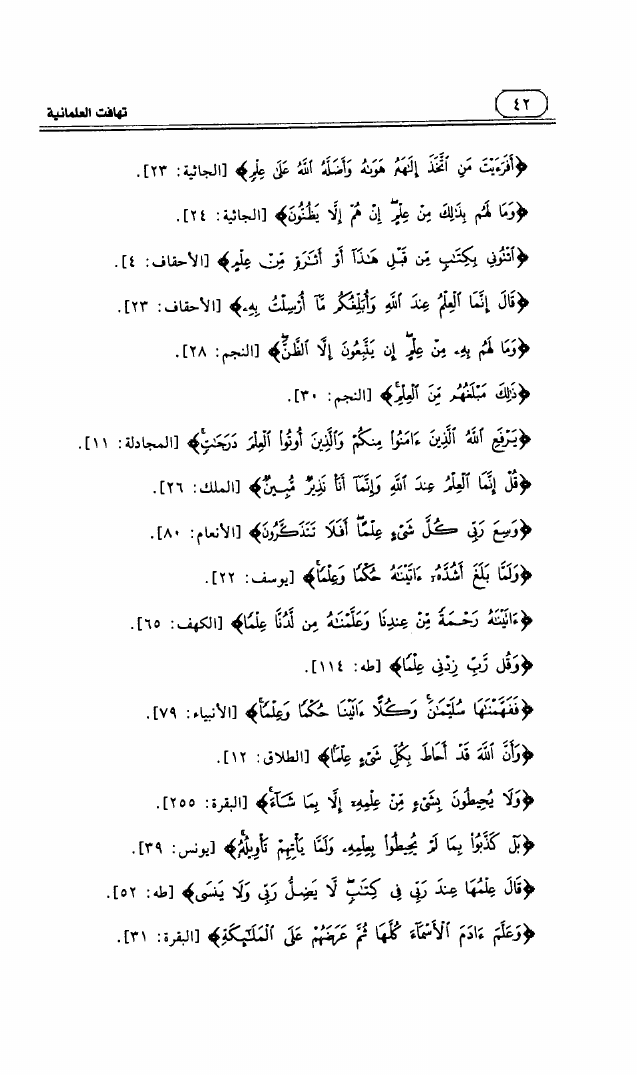 ٤٢
تهافت العلمانية
﴿أَفَرَءَيْتَ مَنِ ٱتَّخَذَ إِلَٰهَهُۥ هَوَىٰهُ وَأَضَلَّهُ ٱللَّهُ عَلَىٰ عِلْمٍ﴾ [الجاثية: ٢٣].
﴿وَمَا لَهُم بِذَٰلِكَ مِنْ عِلْمٍ ۖ إِنْ هُمْ إِلَّا يَظُنُّونَ﴾ [الجاثية: ٢٤].
﴿ٱئْتُونِى بِكِتَٰبٍ مِّن قَبْلِ هَٰذَآ أَوْ أَثَٰرَةٍ مِّنْ عِلْمٍ﴾ [الأحقاف: ٤].
﴿قَالَ إِنَّمَا ٱلْعِلْمُ عِندَ ٱللَّهِ وَأُبَلِّغُكُم مَّآ أُرْسِلْتُ بِهِۦ﴾ [الأحقاف: ٢٣].
﴿وَمَا لَهُم بِهِۦ مِنْ عِلْمٍ ۖ إِن يَتَّبِعُونَ إِلَّا ٱلظَّنَّ ۖ﴾ [النجم: ٢٨].
﴿ذَٰلِكَ مَبْلَغُهُم مِّنَ ٱلْعِلْمِ ۚ﴾ [النجم: ٣٠].
﴿يَرْفَعِ ٱللَّهُ ٱلَّذِينَ ءَامَنُوا۟ مِنكُمْ وَٱلَّذِينَ أُوتُوا۟ ٱلْعِلْمَ دَرَجَٰتٍ ۚ﴾ [المجادلة: ١١].
﴿قُلْ إِنَّمَا ٱلْعِلْمُ عِندَ ٱللَّهِ وَإِنَّمَآ أَنَا۠ نَذِيرٌ مُّبِينٌ﴾ [الملك: ٢٦].
﴿وَسِعَ رَبِّى كُلَّ شَىْءٍ عِلْمًا ۗ أَفَلَا تَتَذَكَّرُونَ﴾ [الأنعام: ٨٠].
﴿وَلَمَّا بَلَغَ أَشُدَّهُۥٓ ءَاتَيْنَٰهُ حُكْمًا وَعِلْمًا ۚ﴾ [يوسف: ٢٢].
﴿ءَاتَيْنَٰهُ رَحْمَةً مِّنْ عِندِنَا وَعَلَّمْنَٰهُ مِن لَّدُنَّا عِلْمًا﴾ [الكهف: ٦٥].
﴿وَقُل رَّبِّ زِدْنِى عِلْمًا﴾ [طه: ١١٤].
﴿فَفَهَّمْنَٰهَا سُلَيْمَٰنَ ۚ وَكُلًّا ءَاتَيْنَا حُكْمًا وَعِلْمًا ۚ﴾ [الأنبياء: ٧٩].
﴿وَأَنَّ ٱللَّهَ قَدْ أَحَاطَ بِكُلِّ شَىْءٍ عِلْمًا﴾ [الطلاق: ١٢].
﴿وَلَا يُحِيطُونَ بِشَىْءٍ مِّنْ عِلْمِهِۦٓ إِلَّا بِمَا شَآءَ ۚ﴾ [البقرة: ٢٥٥].
﴿بَلْ كَذَّبُوا۟ بِمَا لَمْ يُحِيطُوا۟ بِعِلْمِهِۦ وَلَمَّا يَأْتِهِمْ تَأْوِيلُهُۥ ۚ﴾ [يونس: ٣٩].
﴿قَالَ عِلْمُهَا عِندَ رَبِّى فِى كِتَٰبٍ ۖ لَّا يَضِلُّ رَبِّى وَلَا يَنسَى﴾ [طه: ٥٢].
﴿وَعَلَّمَ ءَادَمَ ٱلْأَسْمَآءَ كُلَّهَا ثُمَّ عَرَضَهُمْ عَلَى ٱلْمَلَٰٓئِكَةِ﴾ [البقرة: ٣١].